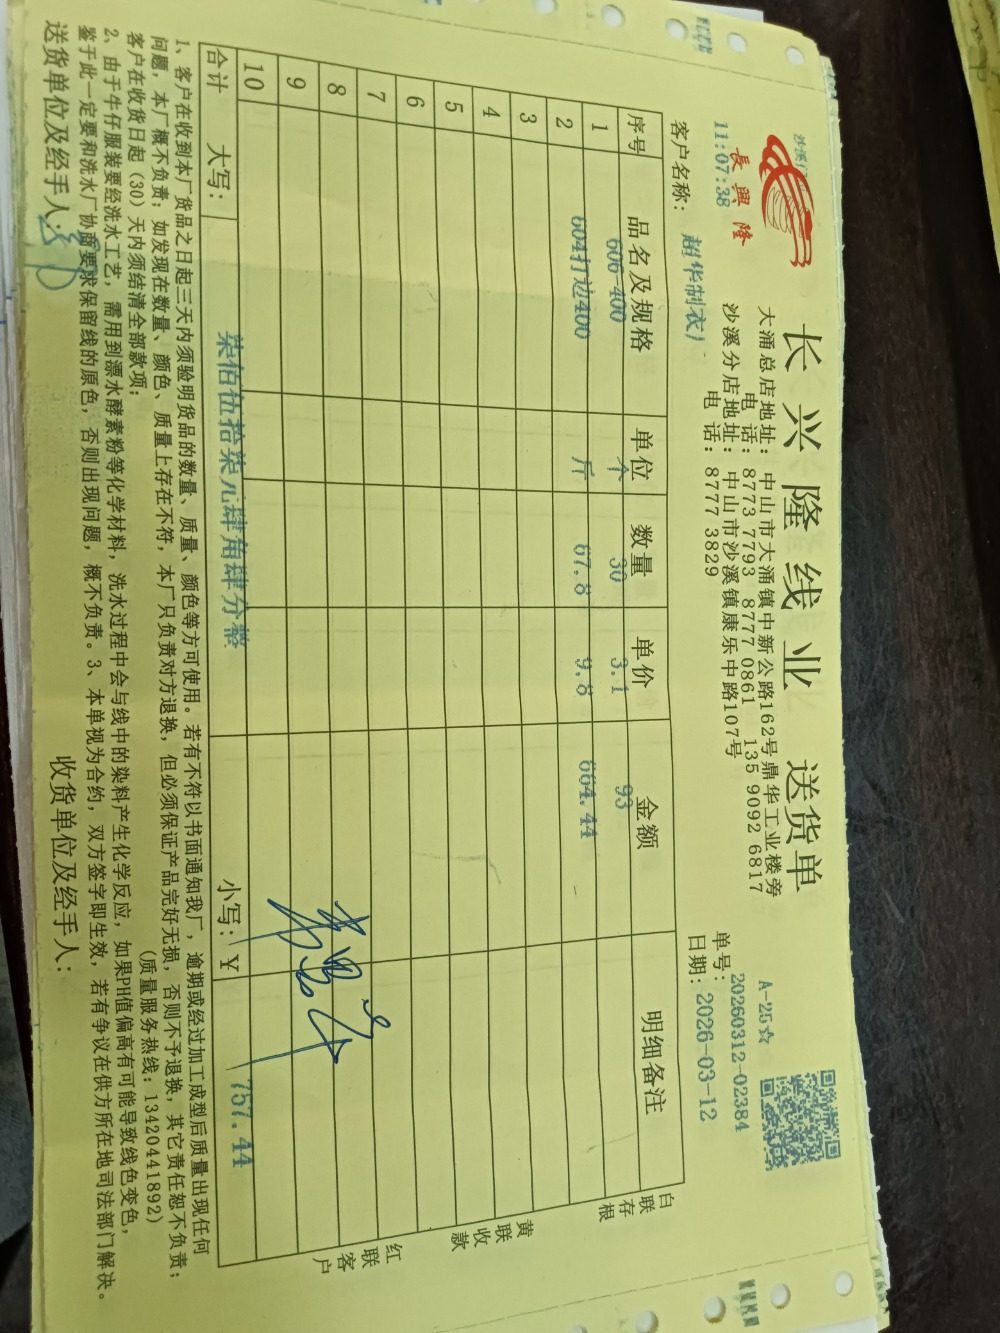 長興隆
11:07:38
长兴隆线业 送货单
大涌总店地址：中山市大涌镇中新公路162号鼎华工业楼旁
电 话：8773 7793 8777 0861 135 9092 6817
沙溪分店地址：中山市沙溪镇康乐中路107号
电 话：8777 3829
A-25☆
单号：20260312-02384
日期：2026-03-12
客户名称：超华制衣）
序号 品名及规格 单位 数量 单价 金额 明细备注
1 606-400 个 30 3.1 93
2 604打边400 斤 67.8 9.8 664.44
3
4
5
6
7
8
9
10
合计 大写： 柒佰伍拾柒元肆角肆分整 小写：￥ 757.44
白联存根
黄联收款
红联客户
1、客户在收到本厂货品之日起三天内须验明货品的数量、质量、颜色等方可使用。若有不符以书面通知我厂，逾期或经过加工成型后质量出现任何
问题，本厂概不负责；如发现在数量、颜色、质量上存在不符，本厂只负责对方退换，但必须保证产品完好无损，否则不予退换，其它责任恕不负责；
客户在收货日起（30）天内须结清全部款项； （质量服务热线：13420441892）
2、由于牛仔服装要经洗水工艺，需用到漂水酵素粉等化学材料，洗水过程中会与线中的染料产生化学反应，如果PH值偏高有可能导致线色变色，
鉴于此一定要和洗水厂协商要求保留线的原色，否则出现问题，概不负责。3、本单视为合约，双方签字即生效，若有争议在供方所在地司法部门解决。
送货单位及经手人： 收货单位及经手人：